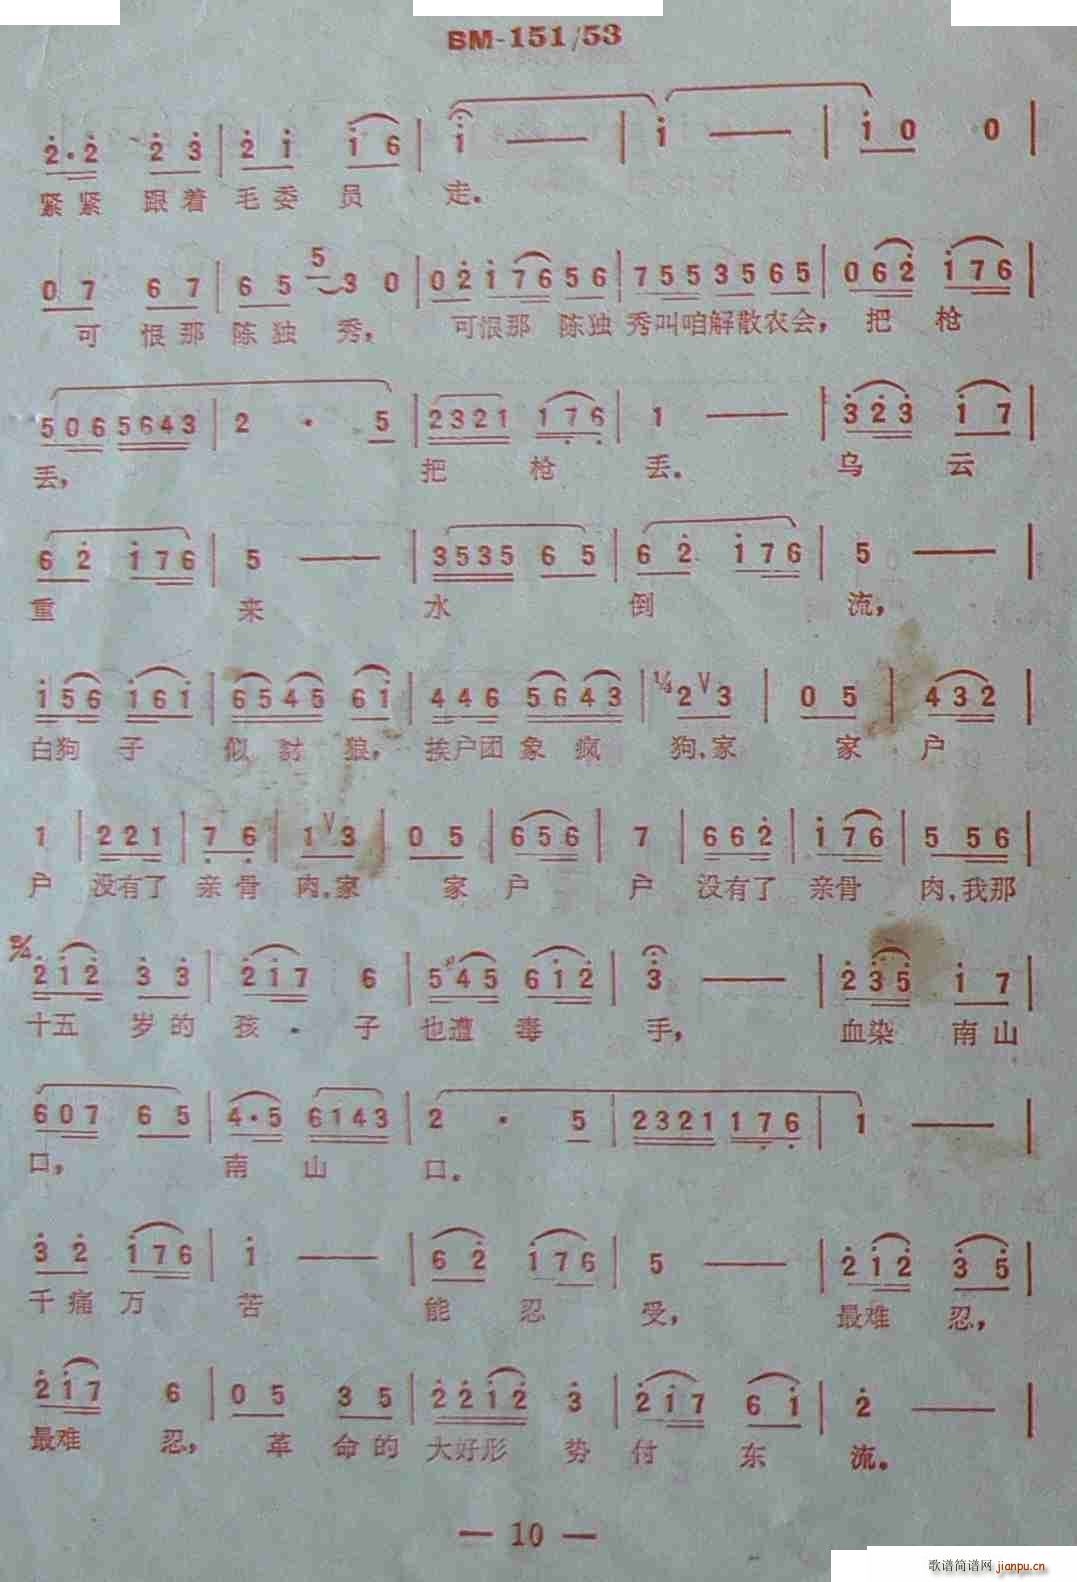 BM-151/53
2·2 2 3 | 2 1 1 6 | 1 — | 1 — | 1 0 0 |
紧紧 跟着 毛委 员 走。
0 7 6 7 | 6 5 5 3 0 | 0 2 1 7 6 5 6 | 7 5 5 3 5 6 5 | 0 6 2 1 7 6 |
可 恨那 陈独 秀， 可恨那 陈独 秀叫咱解散农会， 把 枪
5 0 6 5 6 4 3 | 2 · 5 | 2 3 2 1 1 7 6 | 1 — | 3 2 3 1 7 |
丢， 把 枪 丢。 乌 云
6 2 1 7 6 | 5 — | 3 5 3 5 6 5 | 6 2 1 7 6 | 5 — |
重 来 水 倒 流，
1 5 6 1 6 1 | 6 5 4 5 6 1 | 4 4 6 5 6 4 3 | 1/4 2 V 3 | 0 5 | 4 3 2 |
白狗 子 似 豺 狼， 挨户团 象 疯 狗，家 家 户
1 | 2 2 1 | 7 6 | 1 V 3 | 0 5 | 6 5 6 | 7 | 6 6 2 | 1 7 6 | 5 5 6 |
户 没有了 亲骨 肉，家 家 户 户 没有了 亲骨 肉，我那
2/4 2 1 2 3 3 | 2 1 7 6 | 5 4 5 6 1 2 | 3 — | 2 3 5 1 7 |
十五 岁的 孩 子 也遭 毒 手， 血染 南山
6 0 7 6 5 | 4·5 6 1 4 3 | 2 · 5 | 2 3 2 1 1 7 6 | 1 — |
口， 南 山 口。
3 2 1 7 6 | 1 — | 6 2 1 7 6 | 5 — | 2 1 2 3 5 |
千痛 万 苦 能 忍 受， 最难 忍，
2 1 7 6 | 0 5 3 5 | 2 2 1 2 3 | 2 1 7 6 1 | 2 — |
最难 忍， 革 命的 大好形 势 付 东 流。
— 10 —
歌谱简谱网 jianpu.cn